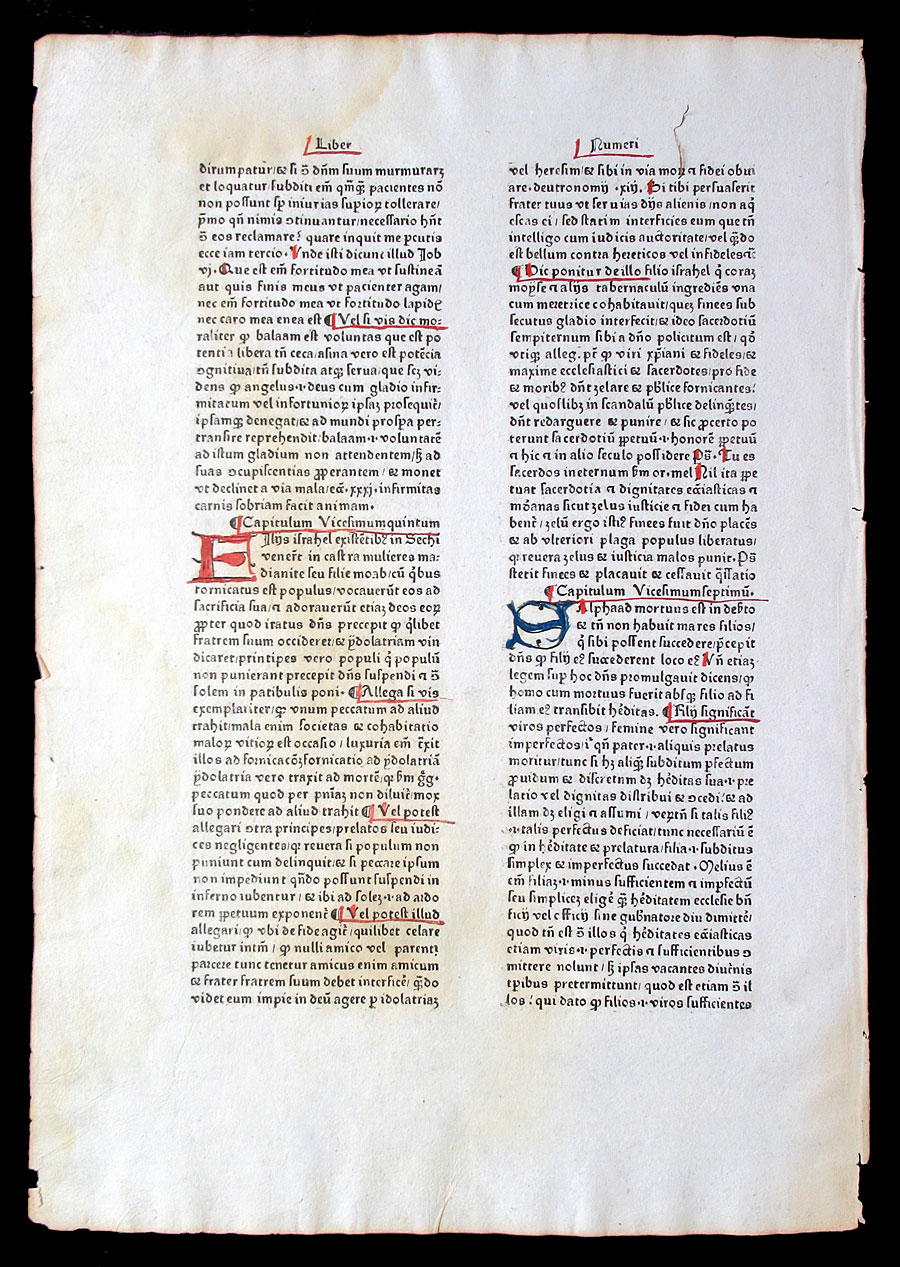 Liber
dirumpatur/⁊ si ɔ̄ dñm suum murmurarꝫ
et loquatur subditi em̄ qm̄qꝫ pacientes nō
non possunt sp̱ iniurias supioꝝ tollerare/
p̄mo qñ nimis ɔtinuantur/necessario hñt
ɔ̄ eos reclamare? quare inquit me ꝑcutis
ecce iam tercio. Vnde isti dicunt illud Job
vj. Que est em̄ fortitudo mea vt sustineā
aut quis finis meus vt pacienter agam/
nec em̄ fortitudo mea vt fortitudo lapidꝫ
nec caro mea enea est ¶ Vel si vis dic mo⸗
raliter ꝙ balaam est voluntas que est po
tentia libera tñ ceca/asina vero est potēcia
ɔgnitiua/tñ subdita atqꝫ serua/que scꝫ vi⸗
dens ꝙ angelus.i.deus cum gladio infir⸗
mitatum vel infortunioꝝ ipsaꝫ prosequit̄/
ipsamqꝫ denegat/⁊ ad mundi prospa per⸗
transire reprehendit/balaam.i.voluntatē
ad istum gladium non attendentem/sꝫ ad
suas ɔcupiscentias ꝓperantem/⁊ monet
vt declinet a via mala/eā.xxxj.infirmitas
carnis sobriam facit animam.
¶ Capitulum Vicesimumquintum
Filijs israhel existētibꝫ in Sechi
venerūt in castra mulieres ma⸗
dianite seu filie moab/cū q̇bus
fornicatus est populus/vocauerūt eos ad
sacrificia sua/⁊ adorauerūt etiaꝫ deos eoꝝ
ꝓpter quod iratus dñs precepit ꝙ q̇libet
fratrem suum occideret/⁊ ydolatriam vin
dicaret/printipes vero populi q̇ populū
non punierant precepit dñs suspendi ⁊ ɔ̄
solem in patibulis poni. ¶ Allega si vis
exemplariter/ꝙ vnum peccatum ad aliud
trahit/mala enim societas ⁊ cohabitatio
maloꝝ vitioꝝ est occasio/luxuria em̄ t̄xit
illos ad fornicacōꝫ/fornicatio ad ydolatriā
ydolatria vero traxit ad mortē/qꝛ ẜm gͦg.
peccatum quod per pnīaꝫ non diluit̄/mox
suo pondere ad aliud trahit ¶ Vel potest
allegari ɔtra principes/prelatos seu iudi⸗
ces negligentes/qꝛ reuera si populum non
puniunt cum delinquit/⁊ si peccare ipsum
non impediunt qñdo possunt suspendi in
inferno iubentur/⁊ ibi ad soleꝫ.i.ad ardo
rem ꝑpetuum exponent̄ ¶ Vel potest illud
allegari/ꝙ vbi de fide agit̄/quilibet celare
iubetur intm̄/ꝙ nulli amico vel parenti
parcere tunc tenetur amicus enim amicum
⁊ frater fratrem suum debet interficē/q̄do
videt eum impie in deū agere ꝑ idolatriaꝫ
Numeri
vel heresim/⁊ sibi in via moꝝ ⁊ fidei obui
are.deutronomij.xiij. Si tibi persuaserit
frater tuus vt seruias dijs alienis/non aq̇
escas ei/sed statim interficies eum que tñ
intelligo cum iudicis auctoritate/vel q̄do
est bellum contra hereticos vel infideles ⁊c̄
¶ Dic ponitur de illo filio israhel q̇ coraꝫ
moyse ⁊ alijs tabernaculū ingrediēs vna
cum meretrice cohabitauit/queꝫ finees sub
secutus gladio interfecit/⁊ ideo sacerdotiū
sempiternum sibi a dño policitum est/qđ
vtiqꝫ alleg.pt̄ ꝙ viri xp̄iani ⁊ fideles/⁊
maxime ecclesiastici ⁊ sacerdotes/pro fide
⁊ moribꝫ dñt zelare ⁊ pblice fornicantes/
vel quoslibꝫ in scandalū pblice delinq̄tes/
dñt redarguere ⁊ punire/⁊ sic ꝓcerto po
terunt sacerdotiū ꝑpetuū.i.honorē ꝑpetuū
⁊ hic ⁊ in alio seculo possidere p̄s. Tu es
sacerdos ineternum ẜm or.mel Nil ita ꝑpe
tuat sacerdotia ⁊ dignitates ecc̄iasticas ⁊
mōanas sicut zelus iusticie ⁊ fidei cum ha
bent̄/zelū ergo istiꝫ finees fuit dño placēs
⁊ ab vlteriori plaga populus liberatus/
qꝛ reuera zelus ⁊ iusticia malos punit. p̄s
stetit finees ⁊ placauit ⁊ cessauit q̄ssatio
¶ Capitulum Vicesimumseptimū.
Salphaad mortuus est in deb̄to
⁊ tñ non habuit mares filios/
q̇ sibi possent succedere/p̄cepit
dñs ꝙ filij eꝫ succederent loco eꝫ Vñ etiaꝫ
legem suꝑ hoc dñs promulgauit dicens/ꝙ
homo cum mortuus fuerit absqꝫ filio ad fi
liam eꝫ transibit hēditas. ¶ Filij significāt
viros perfectos/femine vero significant
imperfectos/iᵍ qñ pater.i.aliquis prelatus
moritur/tunc si hꝫ aliqꝫ subditum ꝑfectum
ꝓuidum ⁊ discretum dꝫ hēditas sua.i.pre
latio vel dignitas distribui ⁊ ɔcedi/⁊ ad
illam dꝫ eligi ⁊ assumi/veꝝtñ si talis filiꝫ
.i.talis perfectus deficiat/tunc necessariū ē
ꝙ in hēditate ⁊ prelatura/filia.i.subditus
simplex ⁊ imperfectus succedat. Melius ē
em̄ filiaꝫ.i.minus sufficientem ⁊ imꝑfectū
seu simpliceꝫ eligē q̄ hēditatem ecclesie bñ
ficij vel officij sine gubnatore diu dimittē/
quod tñ est ɔ̄ illos q̇ hēditates ecc̄iasticas
etiam viris.i.perfectis ⁊ sufficientibus ɔ
mittere nolunt/sꝫ ipsas vacantes diut̄nis
tꝑibus pretermittunt/quod est etiam ɔ̄ il
los/qui dato ꝙ filios.i.viros sufficientes